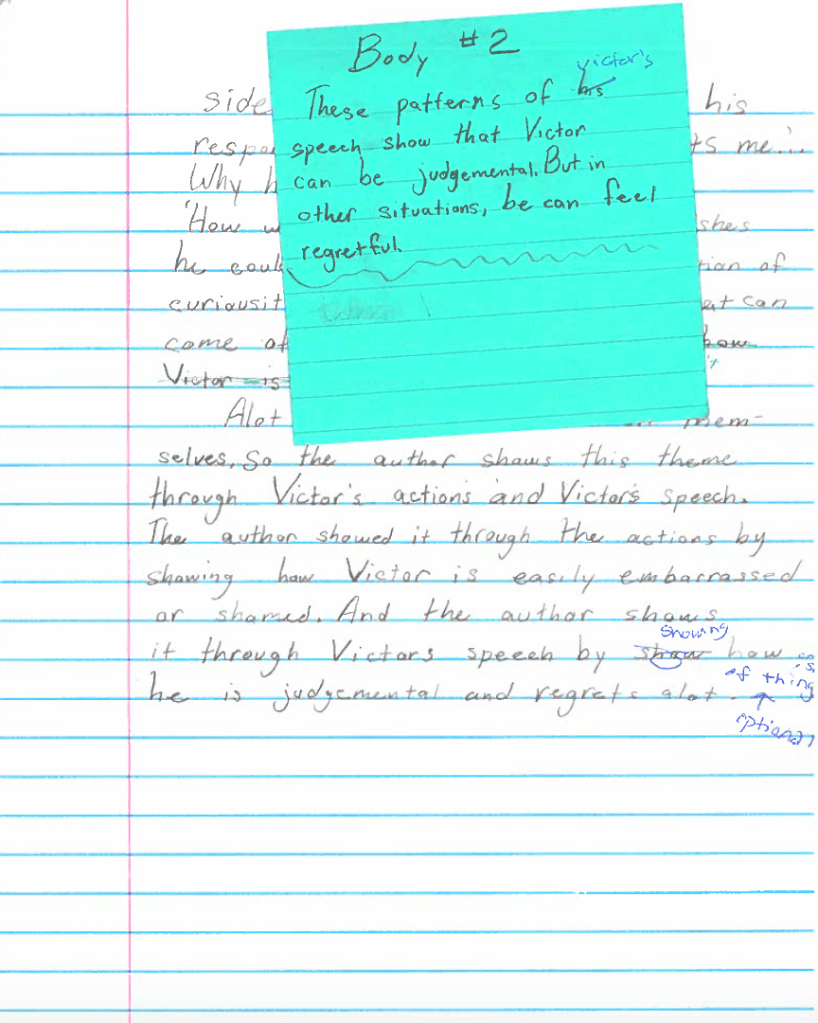 Body #2
victor's
These patterns of his
speech show that Victor
can be judgemental. But in
other situations, be can feel
regretful.
side his
me...
Why
'How
he
of
can
come
how
Victor is
Alot mem-
selves. So the author shows this theme
through Victor's actions and Victor's speech.
The author showed it through the actions by
showing how Victor is easily embarrassed
or shamed. And the author shows
showing
it through Victors speech by show how
of thing
he is judgemental and regrets alot.
optional